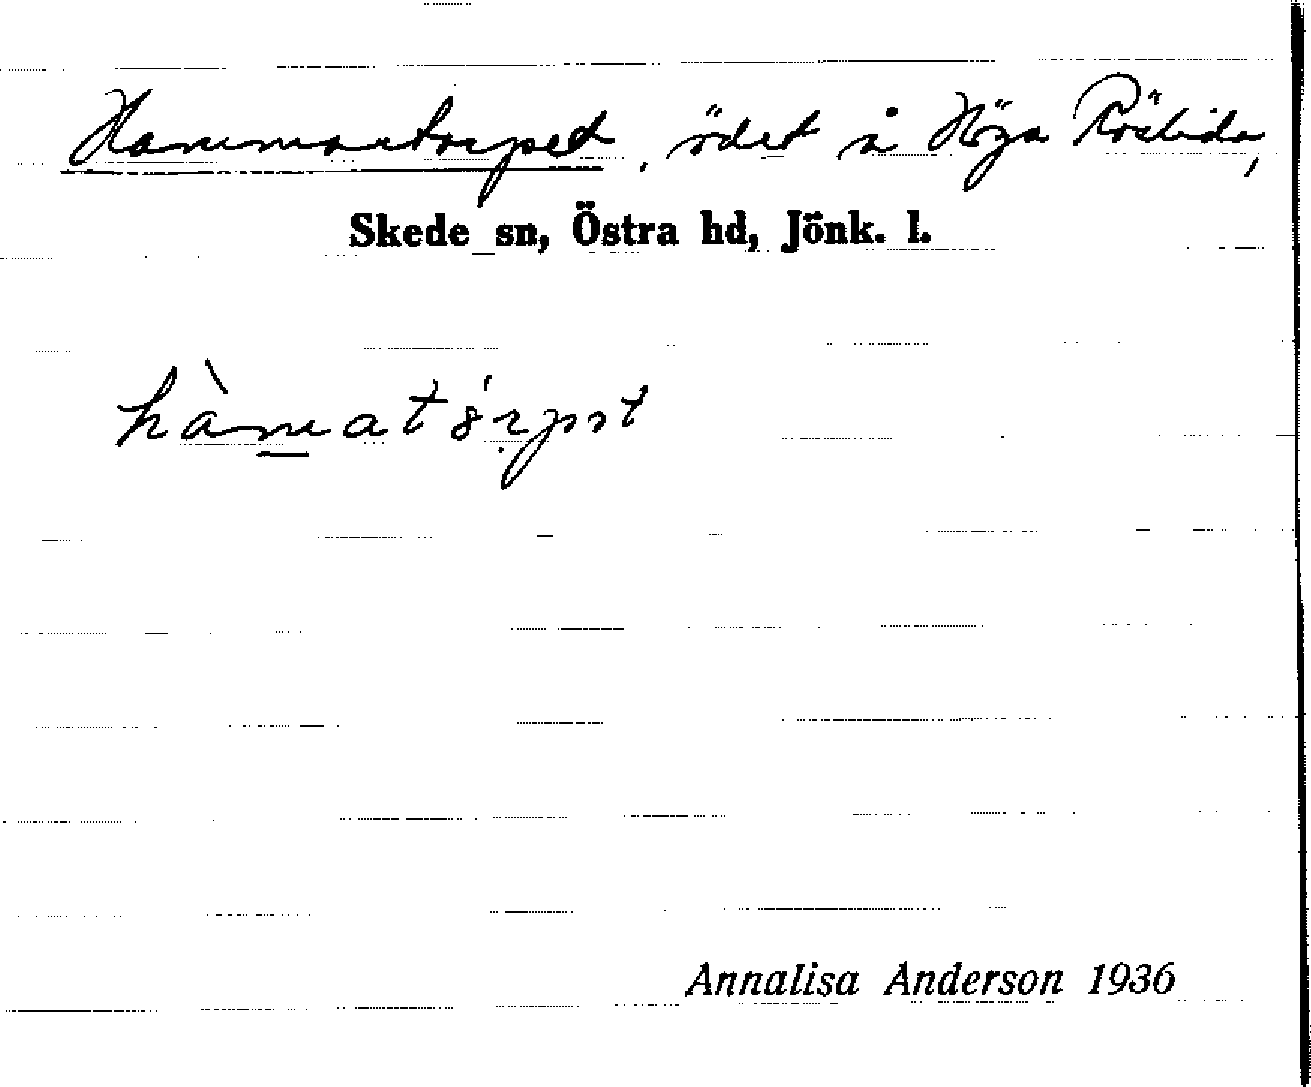 Hammartorpet, ödet å Höga Rösbida,
Skede sn, Östra hd, Jönk. l.
hàmatórpət
Annalisa Anderson 1936